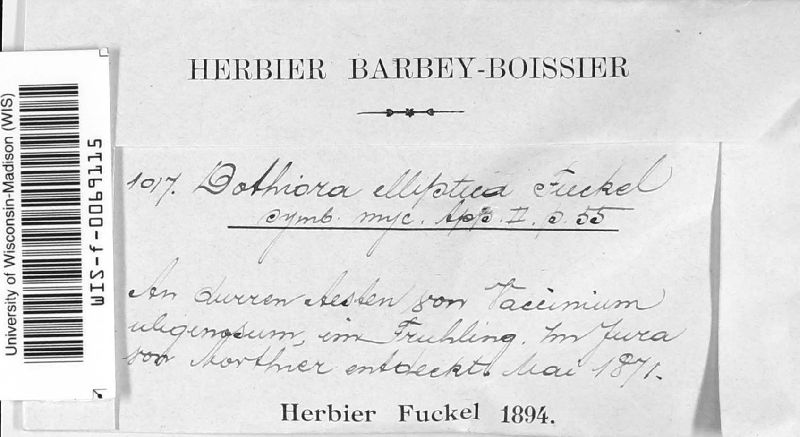 HERBIER BARBEY-BOISSIER
University of Wisconsin-Madison (WIS)
WIS-f-0069115
1017. Dothiora elliptica Fuckel
symb. myc. App. II. p. 55
An durren Aesten von Vaccinium
uliginosum, im Fruhling. Im Jura
von Morthier entdeckt. Mai 1871.
Herbier Fuckel 1894.